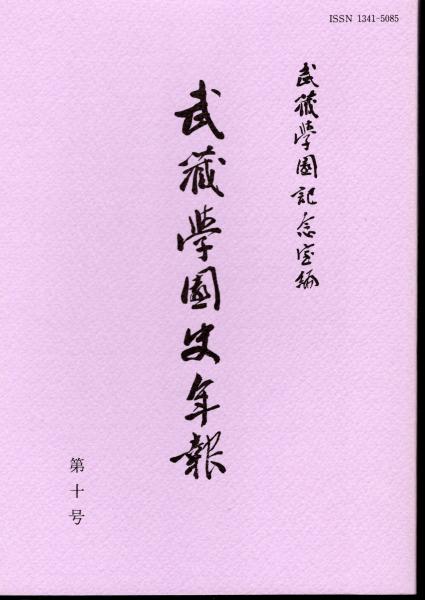 ISSN 1341-5085
武蔵學園記念室編
武蔵學園史年報
第十号